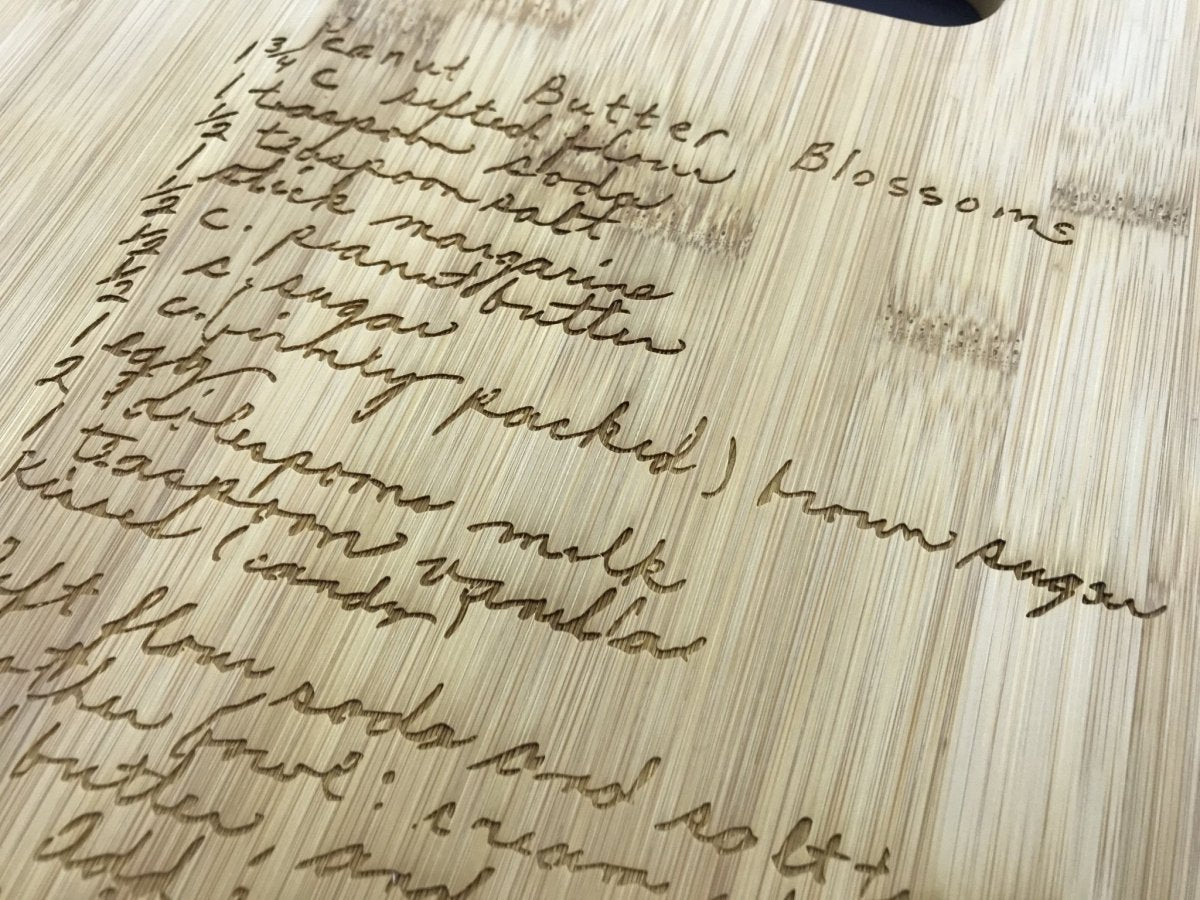 Peanut Butter Blossoms
1 3/4 C sifted flour
1 teaspoon soda
1/2 teaspoon salt
1 stick margarine
1/2 c. peanut butter
1/2 c. sugar
1/2 c. firmly packed) brown sugar
1 egg
2 tablespoons milk
1 teaspoon vanilla
kisses (candy)
flour soda and salt
bowl: cream
butter
add; and